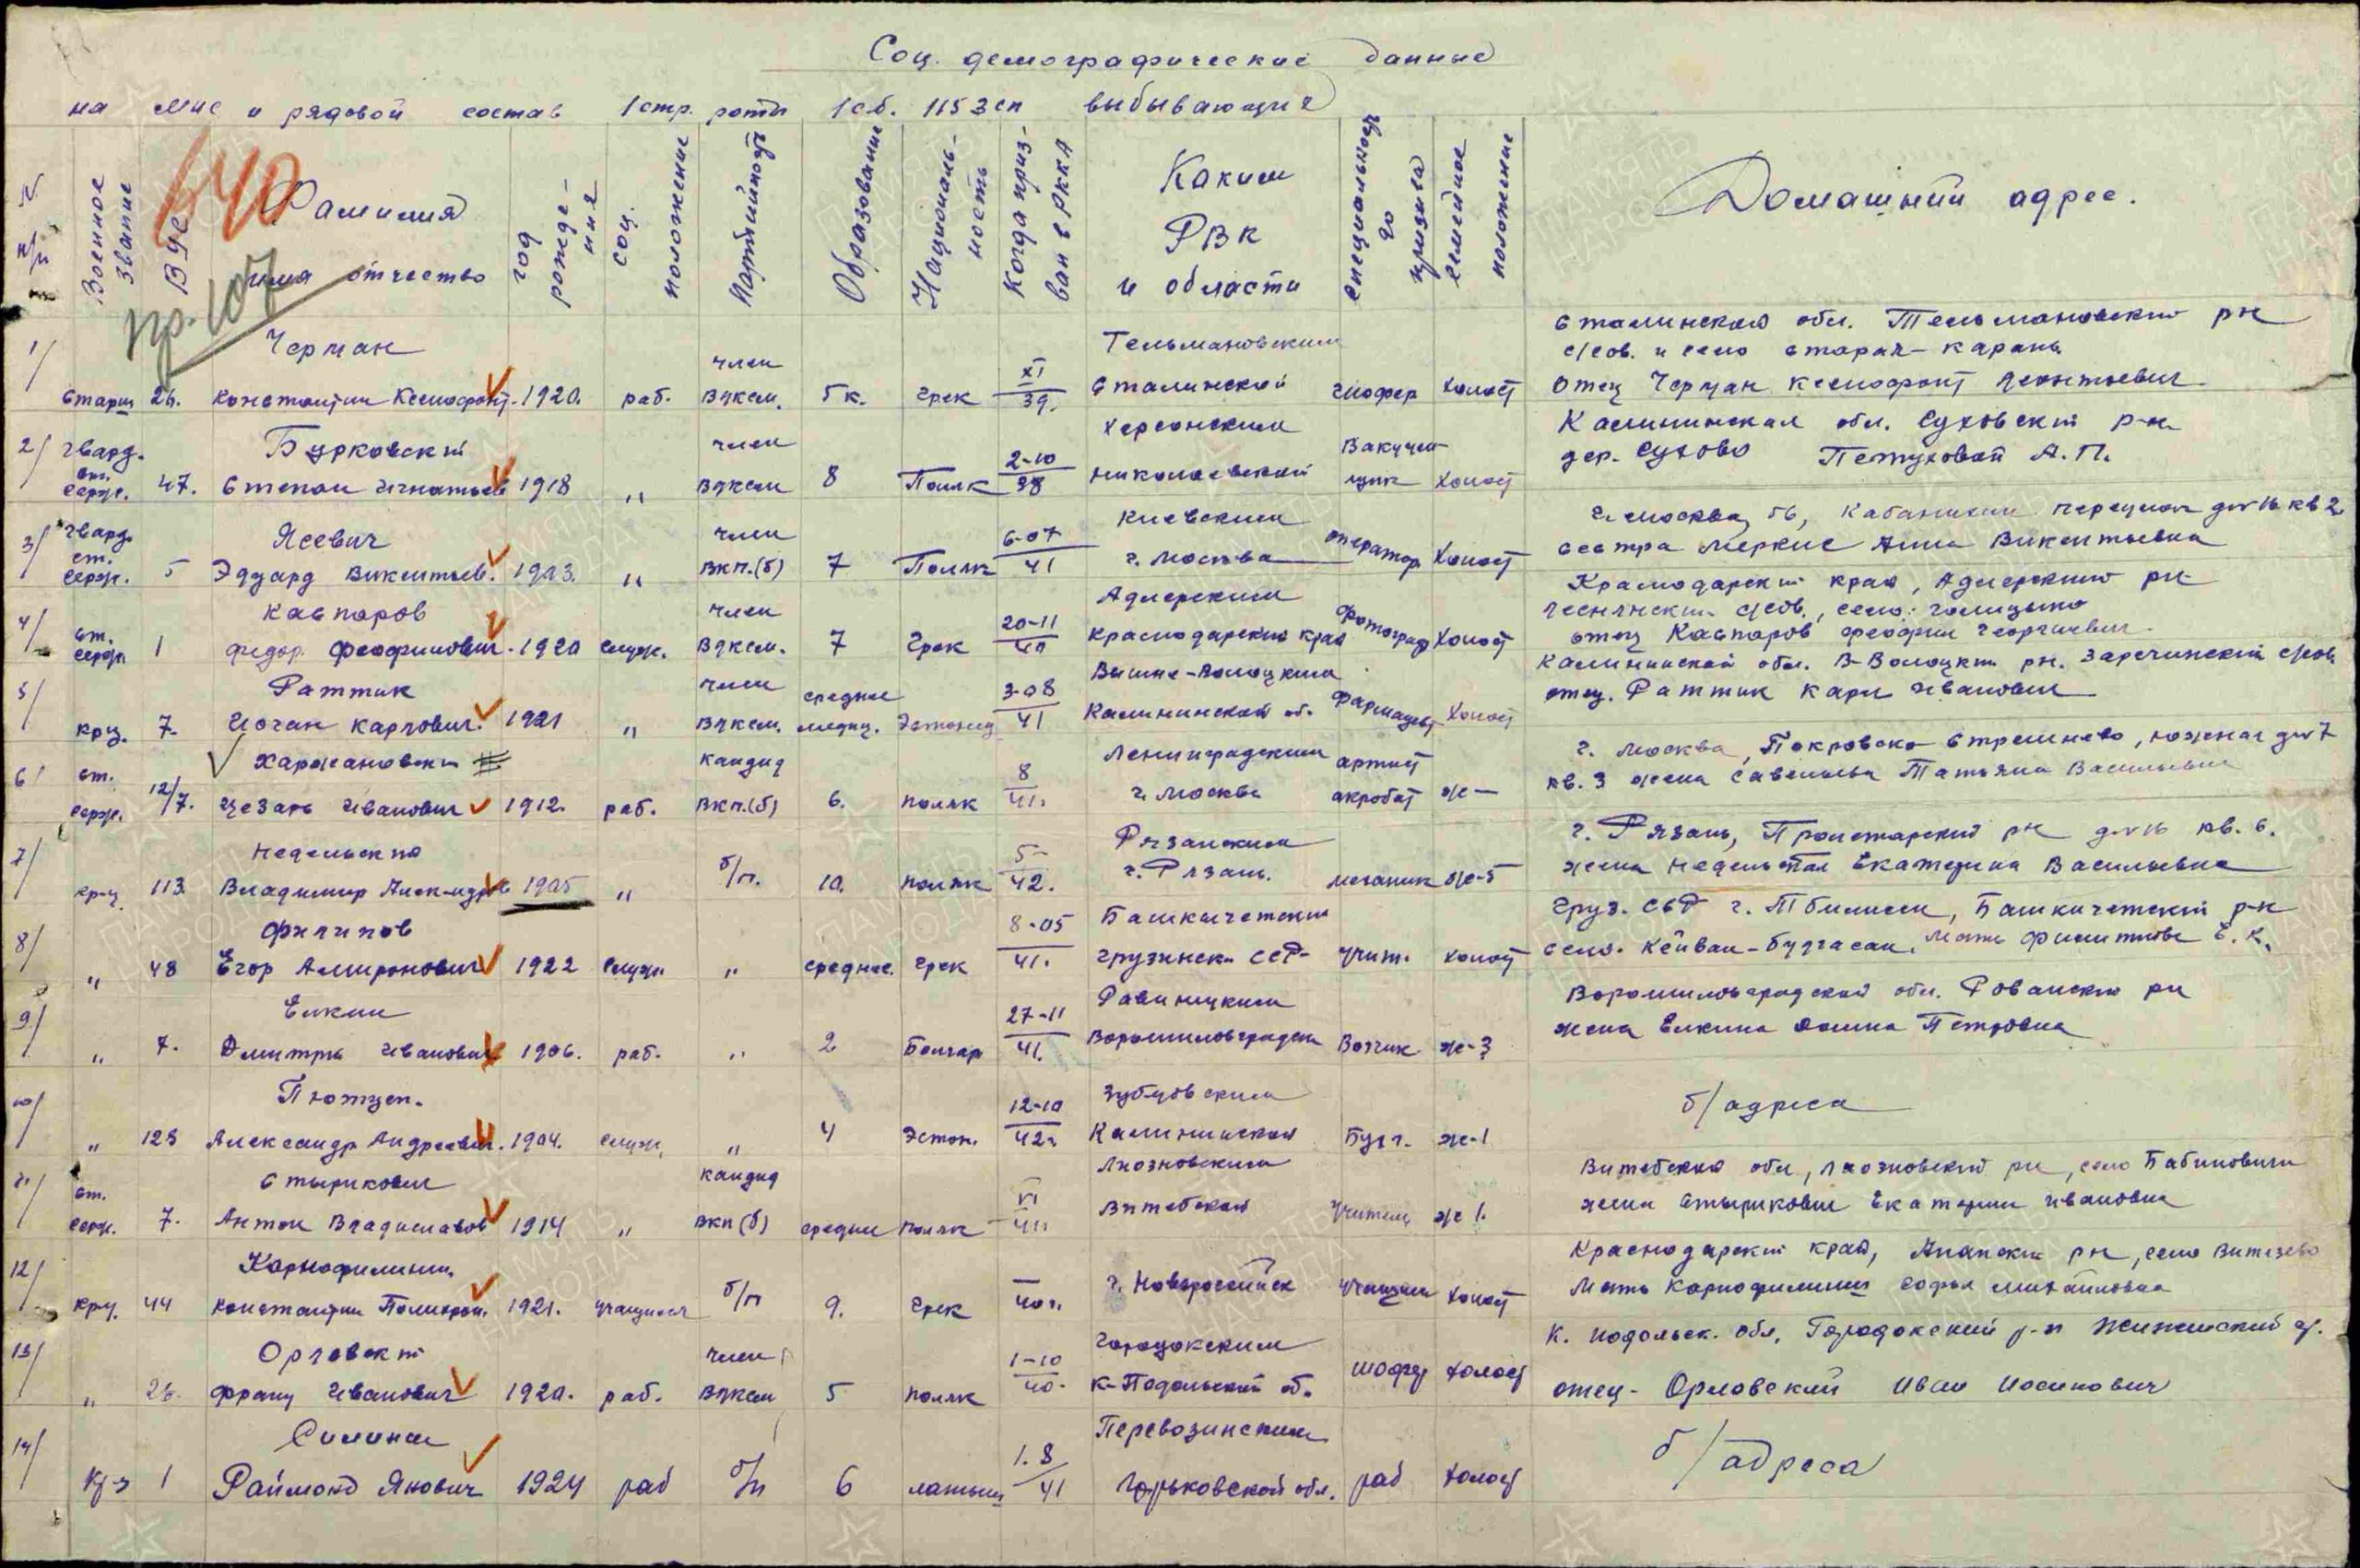 Соц. демографические данные
на мнс и рядовой состав 1 стр. роты 1 с.б. 1153 сп выбывающих
640
пр. 107
N п/п Военное звание ВУС Фамилия имя отчество год рождения соц. положение Партийность Образование Националь-ность Когда приз-ван в РККА Каким РВК и области специальность до призыва семейное положение Домашний адрес.
1/ Черман член XI Тельмановским Сталинской обл. Тельмановский рн
с/сов. и село старая-карань
Старш 26. Константин Ксенофонт. 1920. раб. ВЛКСМ. 5к. грек 39. Сталинской шофер холост отец Черман Ксенофонт Леонтьевич
2/ гвард. Бурковский член 2-10 Херсонским Вакумм- Калининская обл. Суховский р-н
ст. серж. 47. Степан Игнатьев 1918 " ВЛКСМ 8 Поляк 38 Николаевской щик холост дер. Сухово Петуховой А.П.
3/ гвард. Ясевич член 6-07 Киевским г. Москва, 56, переулок д№16 кв 2
ст. серж. 5 Эдуард Викентьев. 1903. " ВКП.(б) 7 Поляк 41 г. Москва оператор холост сестра Меркис Анна Викентьевна
4/ Каспаров член 20-11 Адлерским Краснодарский край, Адлерский рн
с/сов., село: голицыно
ст. серж. 1 Федор Феофилович. 1920 служ. ВЛКСМ. 7 грек 40 Краснодарский край фотограф холост отец Каспаров Феофил Георгиевич
5/ Раттик член среднее 3-08 Вышне-Волоцким Калининской обл. В-Волоцкий рн. Заречинский с/сов
крц. 7. Иоган Карлович. 1921 " ВЛКСМ. медиц. Эстонец 41 Калининской об. Фармацевт холост отец. Раттик Карл Иванович
6/ ст. Харжановский кандид 8 Ленинградским артист г. Москва, Покровско Стрешнево, южная д№7
серж. 12/7. Цезарь Иванович 1912. раб. ВКП.(б) 6. поляк 41. г. Москва акробат ж— кв. 3 жена Савельева Татьяна Васильевна
7/ Недельский 5 Рязанским г. Рязань, Пролетарский рн д№16 кв. 6.
кр-ц. 113. Владимир Алек-ндров 1905 " б/п. 10. поляк 42. г. Рязань. механик ж-5 жена Недельская Екатерина Васильевна
8/ Филипов 8-05 Башкичетским Груз. ССР г. Тбилиси, Башкичетский р-н
" 48 Егор Амиронович 1922 служ " среднее. грек 41. грузинск. ССР- учит. холост село. Кейван-булгасан. мать Филиппова Е. К.
9/ Елкин 27-11 Ворошиловградской обл. Рованский рн
" 7. Дмитрий Иванович 1906. раб. " 2 Болгар 41. Ворошиловградск Возчик ж-3 жена Елкина Петровна
10/ Пютцеп. 12-10 Зубцовским б/адреса
" 123 Александр Андреевич. 1904. служ, " 4 эстон. 42г Калининской Бухг. ж-1
11/ Стырикович кандид VI Лиозновским Витебской обл, Лиозновский рн, село Бабиновичи
ст. серж. 7. Антон Владиславов 1914 " ВКП(б) средни поляк 41г Витебской Учитель ж 1. жена Стырикович Екатерин Ивановна
12/ Карнофилиши. — Краснодарский край, Анапский рн, село Витязево
крц. 44 Константин Поликрон. 1921. учащийся б/п 9. грек 40г. г. Новороссийск учащийся холост мать Карнофилиши софья михайловна
13/ Орловский член 1-10 Городокским К. подольск. обл, Городокский р-н с.
" 26. Франц Иванович 1920. раб. ВЛКСМ 5 поляк 40. К-Подольской об. шофер холост отец- Орловский Иван Иосипович
14/ Силинш 1.8 Перевозинским б/адреса
Кр-ц 1 Раймонд Янович 1924 раб б/п 6 латыш 41 Горьковской обл. раб холост